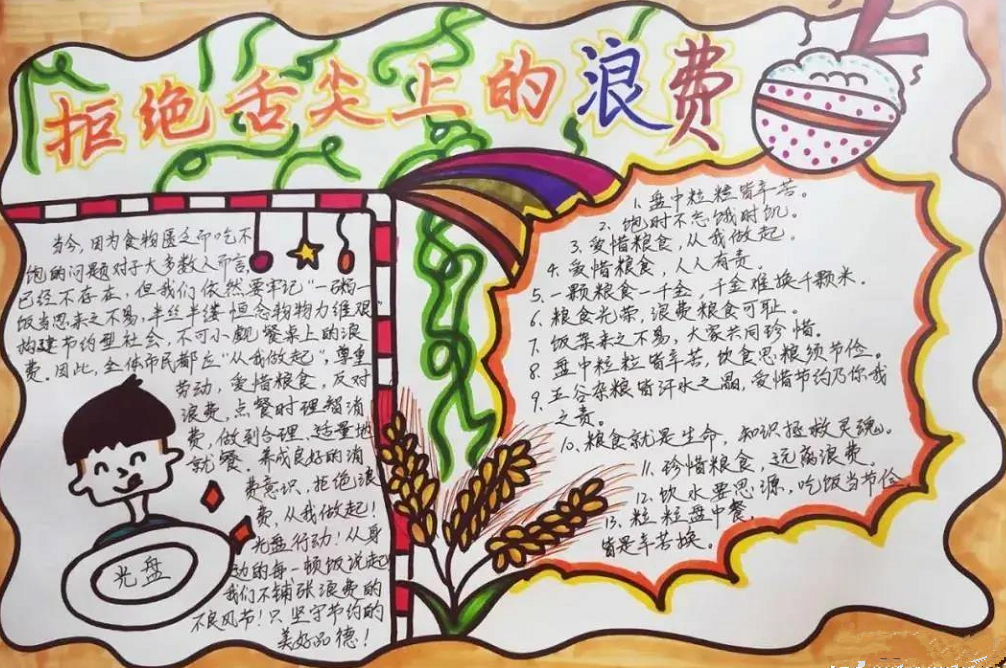 拒绝舌尖上的浪费
当今,因为食物匮乏而吃不
饱的问题对于大多数人而言,
已经不存在,但我们依然要牢记“一粥一
饭当思来之不易,半丝半缕恒念物物力维艰
构建节约型社会,不可小觑餐桌上的浪
费。因此,全体市民都应“从我做起”,尊重
劳动,爱惜粮食,反对
浪费,点餐时理智消
费,做到合理、适量地
就餐。养成良好的消
费意识,拒绝浪
费,从我做起!
光盘行动!从身
边的每一顿饭说起
我们不铺张浪费的
不良风节!只坚守节约的
美好品德!
光盘
1. 盘中粒粒皆辛苦。
2. 饱时不忘饿时饥。
3. 爱惜粮食,从我做起。
4. 爱惜粮食,人人有责。
5. 一颗粮食一千金,千金难换千颗米。
6. 粮食光荣,浪费粮食可耻。
7. 饭菜来之不易,大家共同珍惜。
8. 盘中粒粒皆辛苦,饮食思粮须节俭。
9. 五谷杂粮皆汗水之晶,爱惜节约乃你我
之责。
10. 粮食就是生命,知识拯救灵魂。
11. 珍惜粮食,远离浪费。
12. 饮水要思源,吃饭当节俭
13. 粒粒盘中餐,
皆是辛苦换。